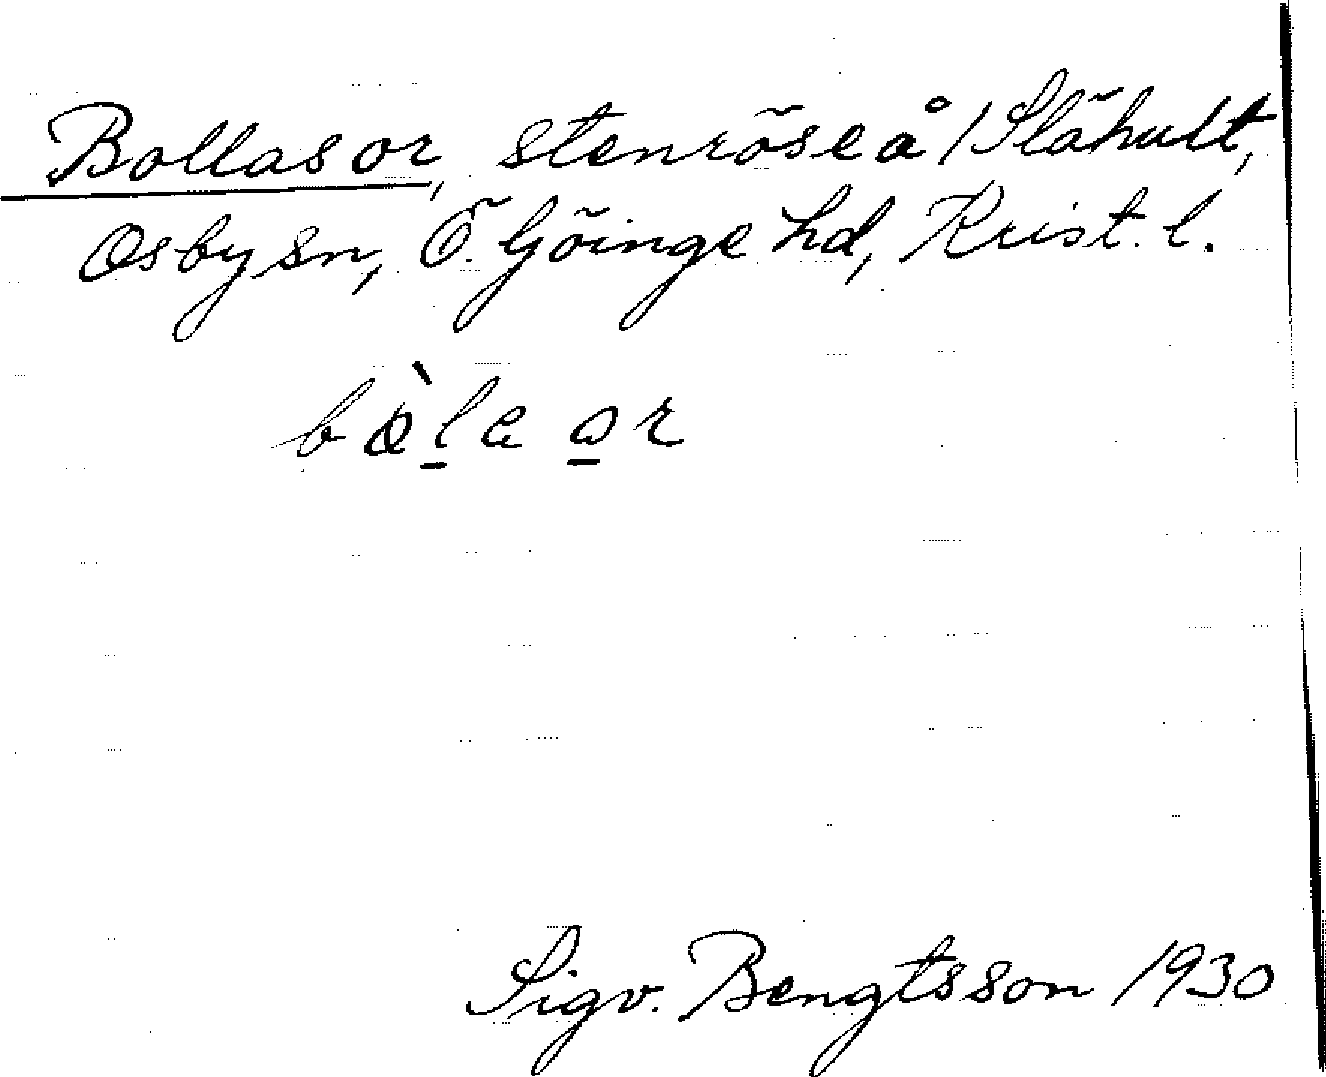 Bollas or, stenröse å 1 Slähult,
Osby sn, Ö. Göinge hd, Krist. l.
bòla or
Sigv. Bengtsson 1930